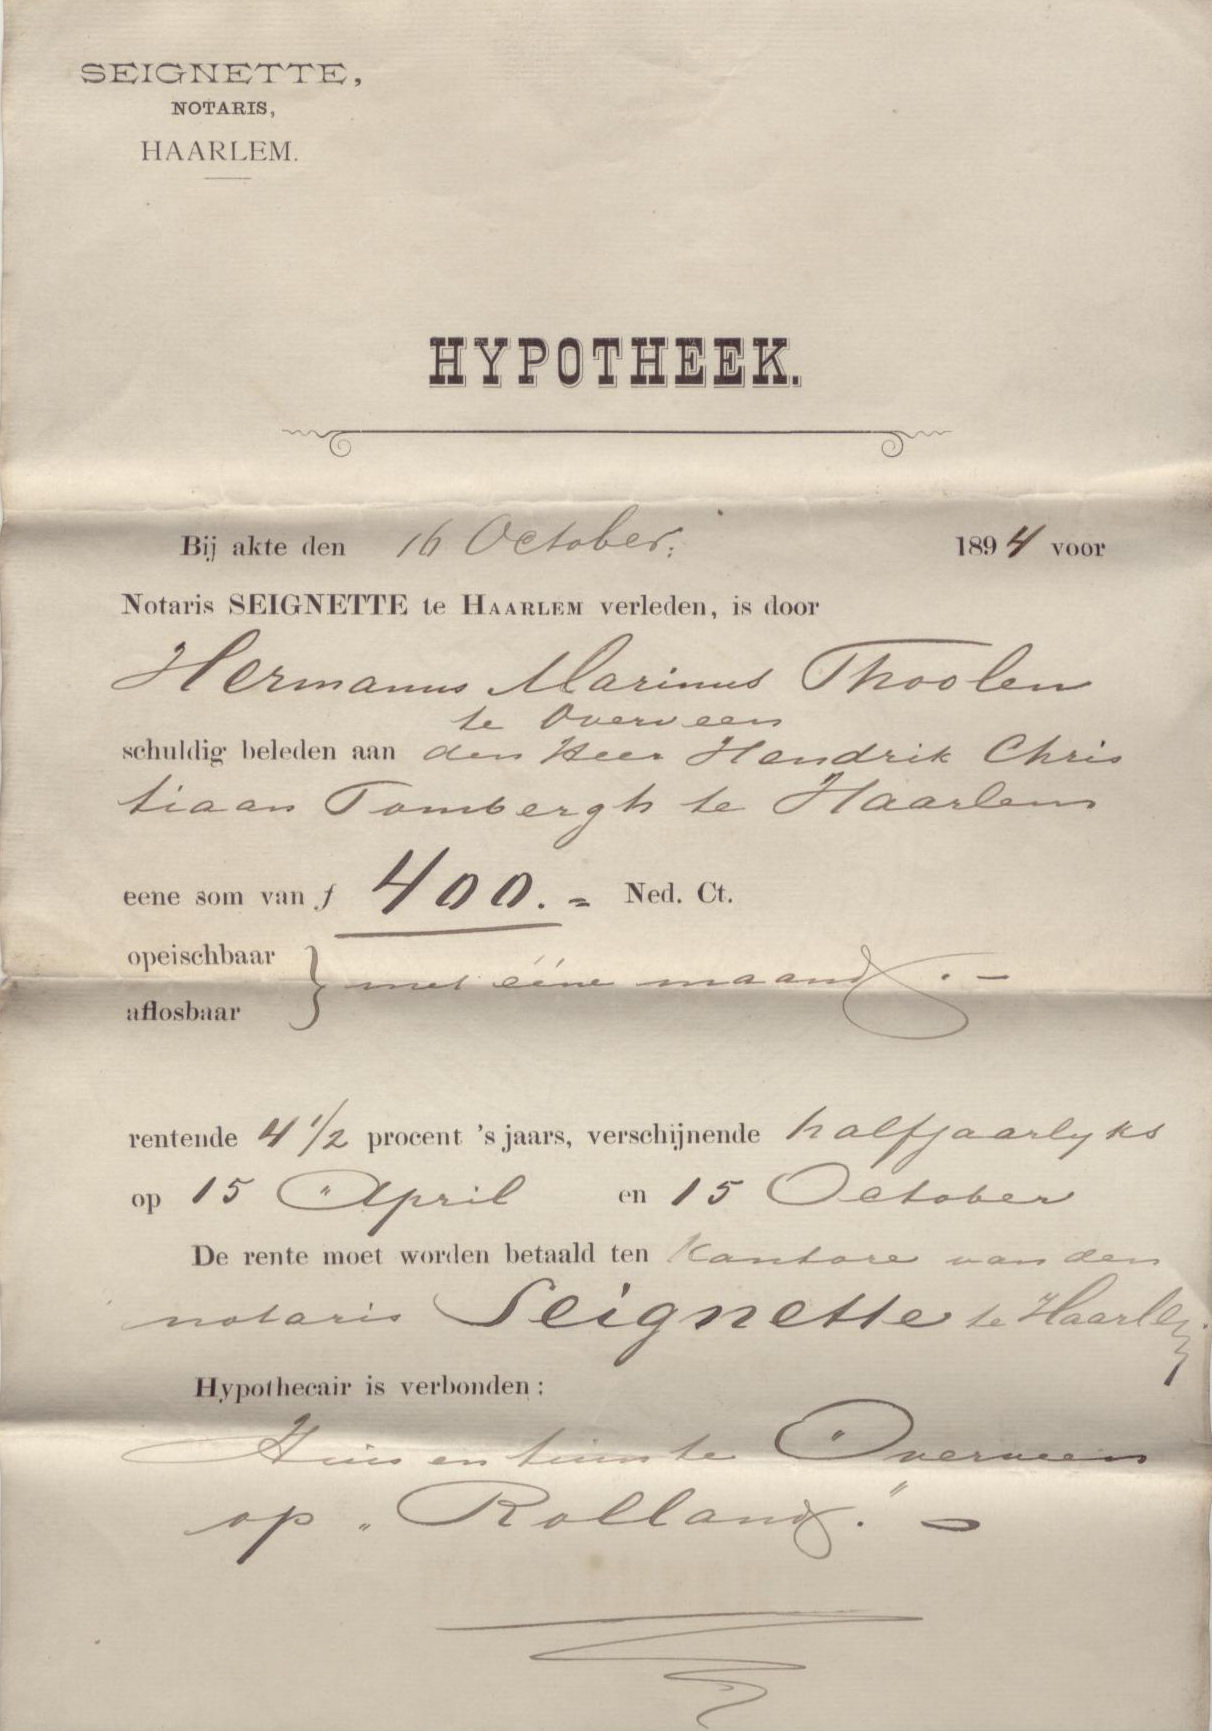 SEIGNETTE,
NOTARIS,
HAARLEM.
HYPOTHEEK.
Bij akte den 16 October. 1894 voor
Notaris SEIGNETTE te HAARLEM verleden, is door
Hermanus Marinus Thoolen
te Overveen
schuldig beleden aan den Heer Hendrik Chris
tiaan Tombergh te Haarlem
eene som van ƒ 400.= Ned. Ct.
opeischbaar
aflosbaar } met ééne maand. —
rentende 4 1/2 procent 's jaars, verschijnende halfjaarlyks
op 15 April en 15 October
De rente moet worden betaald ten Kantore van den
notaris Seignette te Haarlem.
Hypothecair is verbonden:
Huis en tuin te Overveen
op „Rolland." —